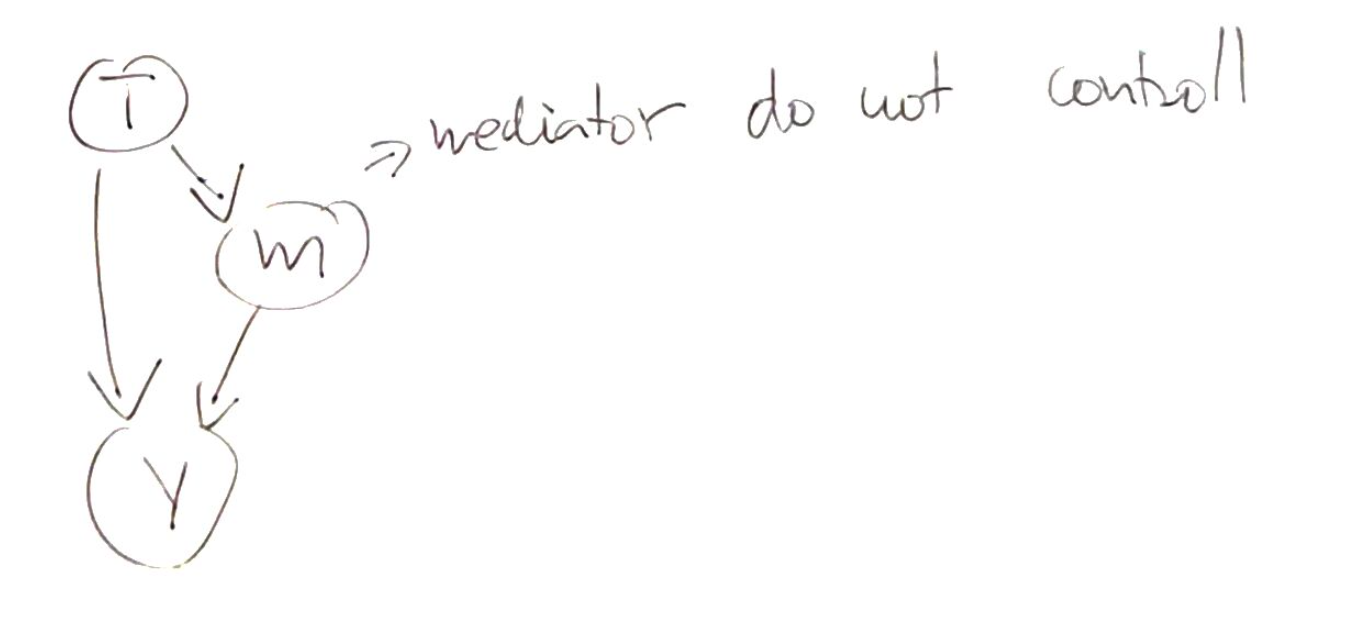 T
⇒ mediator do not controll
m
Y